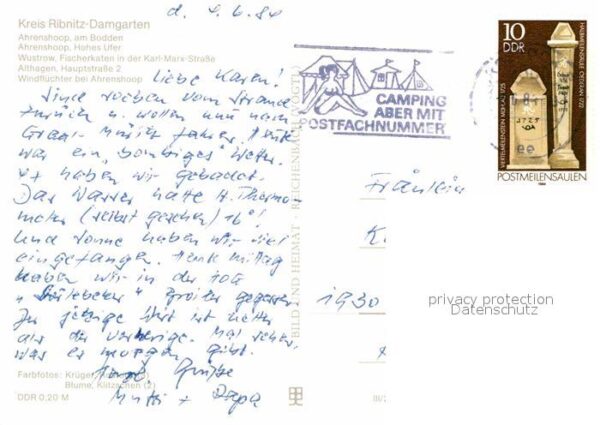 d. 4.6.84
Kreis Ribnitz-Damgarten
Ahrenshoop, am Bodden
Ahrenshoop, Hohes Ufer
Wustrow, Fischerkaten in der Karl-Marx-Straße
Althagen, Hauptstraße 2
Windflüchter bei Ahrenshoop
Liebe Karen!
Sind soeben vom Strande
zurück u. wollen nun nach
Graal-Müritz fahren. Heute
war ein "sonniges" Wetter
u. haben wir gebadet.
Das Wasser hatte lt. Thermo-
meter (selbst gesehen) 16°!
Und Sonne haben wir viel
eingefangen. Heute Mittag
haben wir in der
gegessen
Der jetzige ist netter
als der vorherige. Mal sehen,
was es morgen gibt.
Grüße
Mutti + Papa
Farbfotos: Krüger,
Blume, Klitzschen (2)
DDR 0,20 M
BILD UND HEIMAT · REICHENBACH (VOGTL)
CAMPING
ABER MIT
POSTFACHNUMMER
10
DDR
VIERTELMEILENSTEIN MÜHLAU 1725
HALBMEILENSÄULE OEDERAN 1722
POSTMEILENSÄULEN
1984
Fräulein
K
1930
privacy protection
Datenschutz